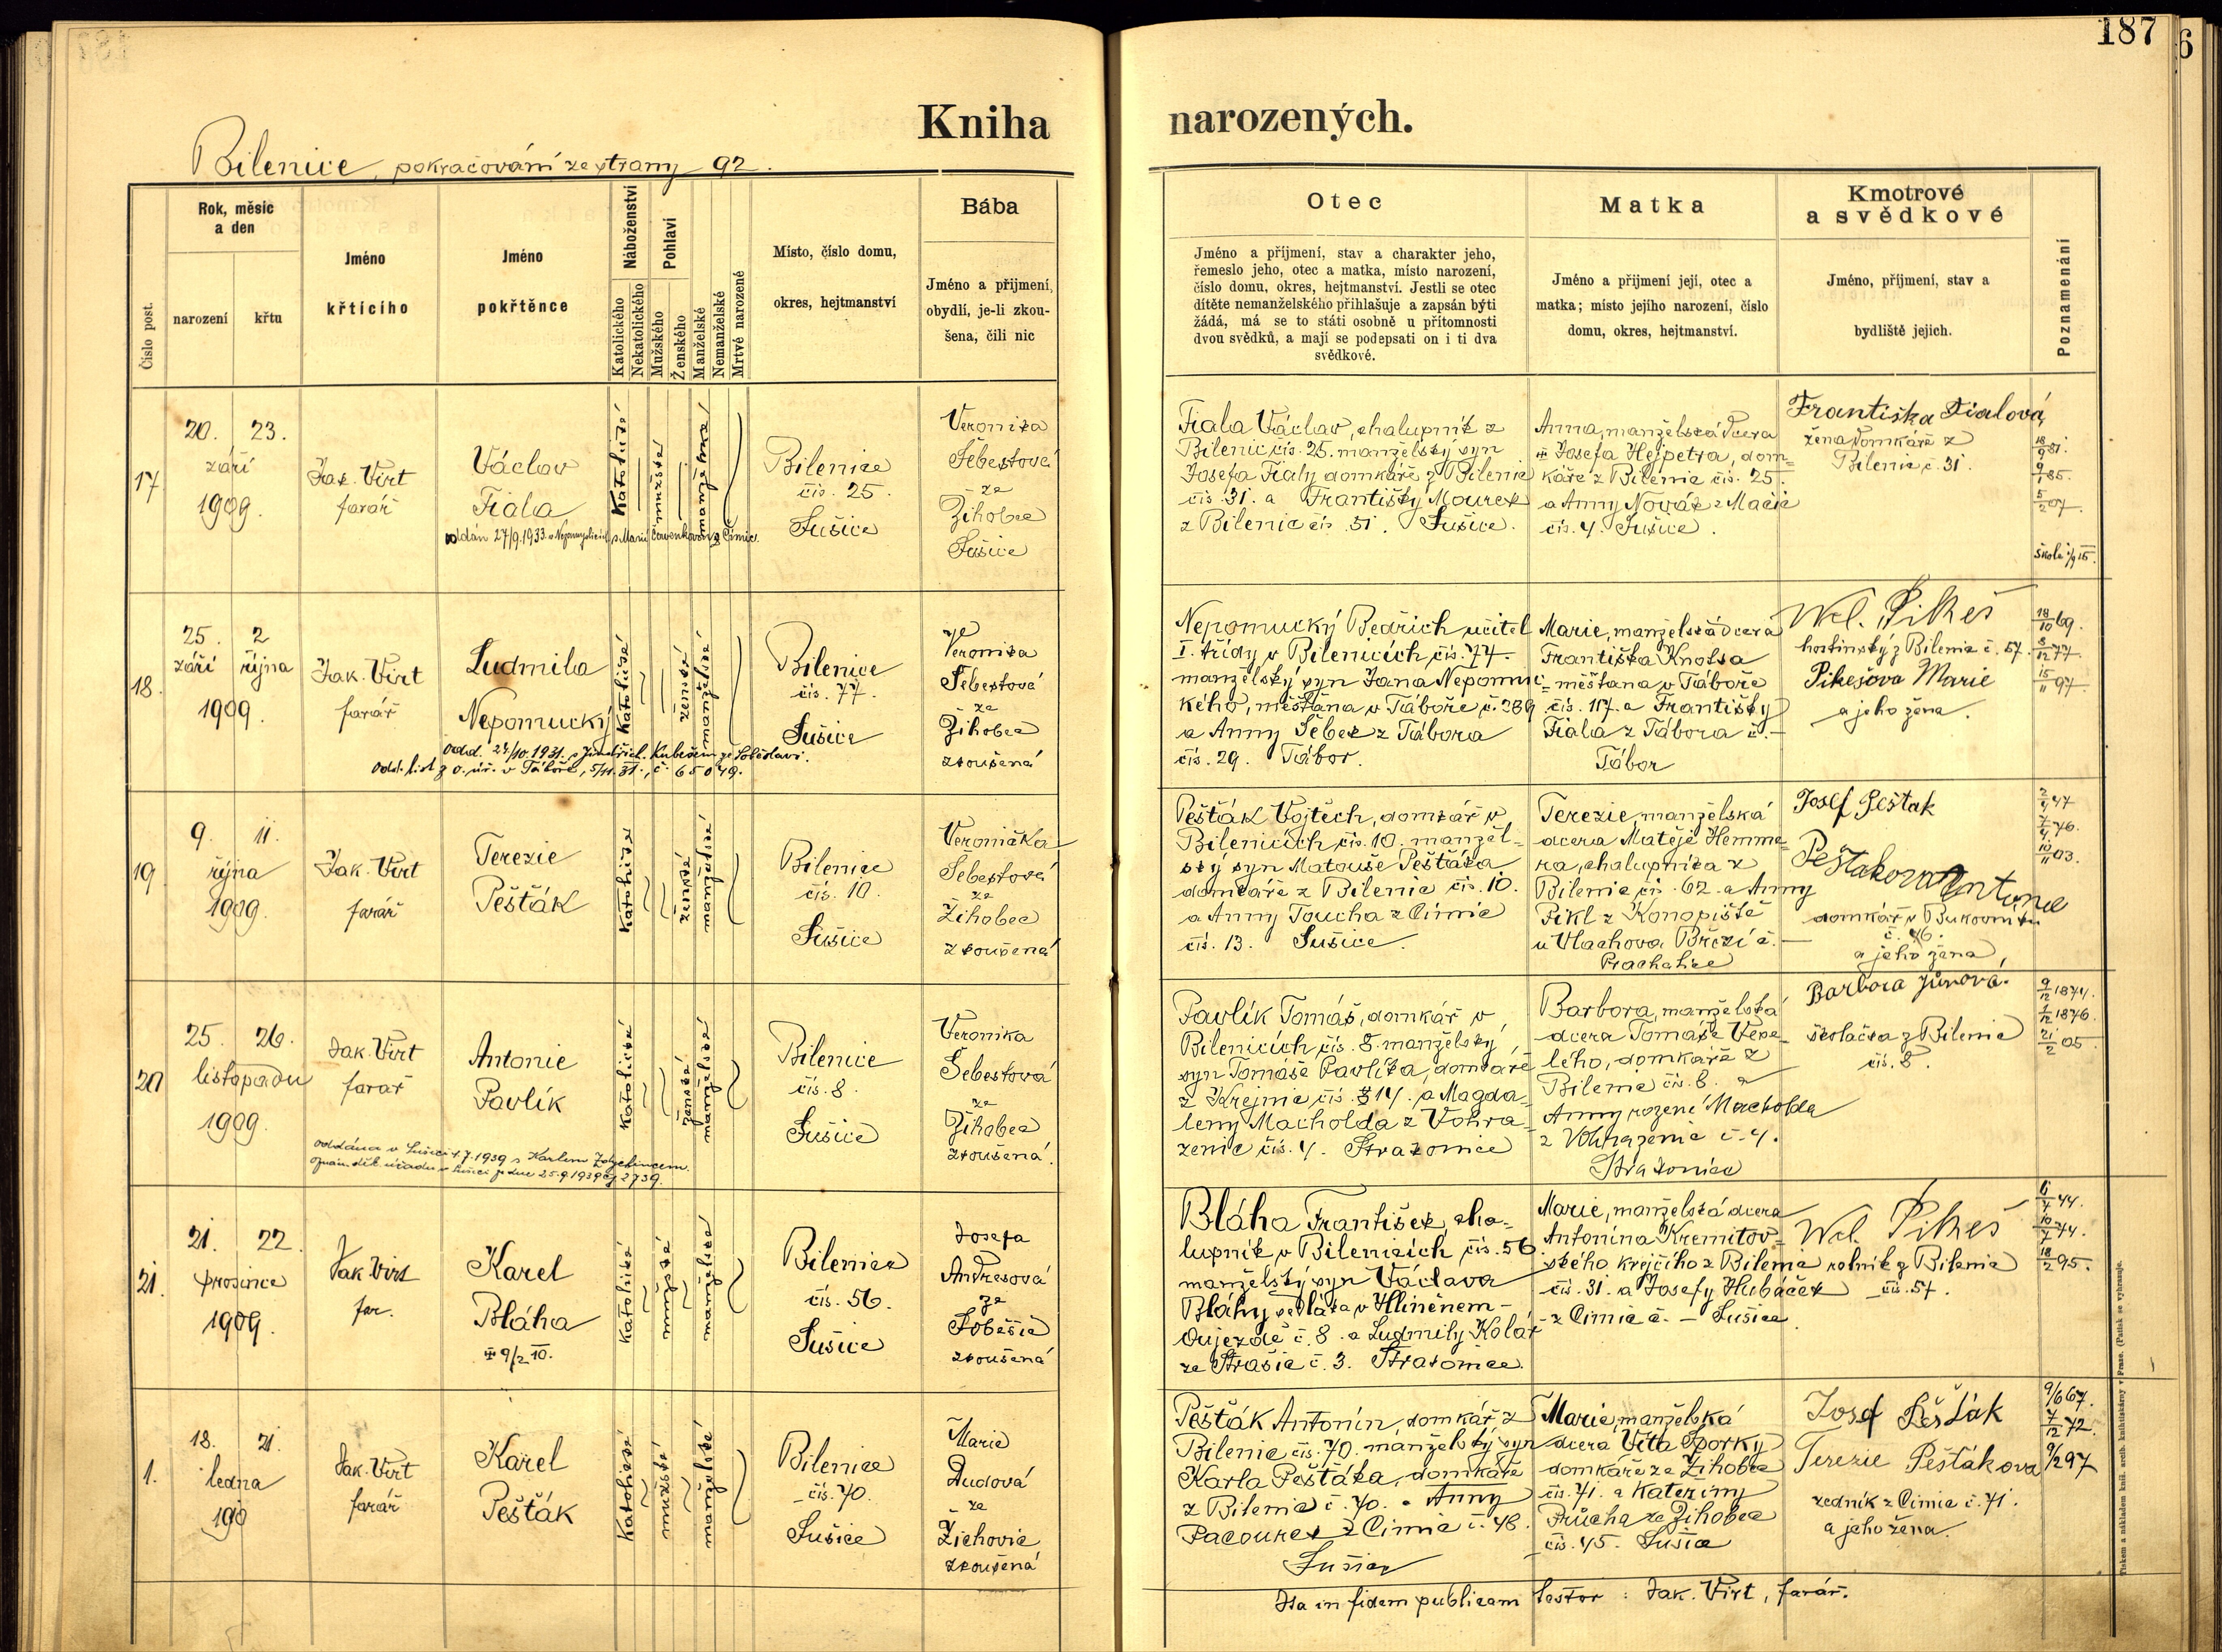 187
Kniha narozených.
Bilenice, pokračování ze strany 92.
Číslo post.
Rok, měsíc
a den
narození
křtu
Jméno
křtícího
Jméno
pokřtěnce
Náboženství
Katolického
Nekatolického
Pohlaví
Mužského
Ženského
Manželské
Nemanželské
Mrtvě narozené
Místo, číslo domu,
okres, hejtmanství
Bába
Jméno a příjmení,
obydlí, je-li zkou-
šena, čili nic
Otec
Jméno a příjmení, stav a charakter jeho,
řemeslo jeho, otec a matka, místo narození,
číslo domu, okres, hejtmanství. Jestli se otec
dítěte nemanželského přihlašuje a zapsán býti
žádá, má se to státi osobně u přítomnosti
dvou svědků, a mají se podepsati on i ti dva
svědkové.
Matka
Jméno a příjmení její, otec a
matka; místo jejího narození, číslo
domu, okres, hejtmanství.
Kmotrové
a svědkové
Jméno, příjmení, stav a
bydliště jejich.
Poznamenání
17
20. 23.
září
1909.
Jak. Virt
farář
Václav
Fiala
oddán 27/9.1933. v Nezamyslicích s Marií Červenkovou z Čimic.
Katolické
mužské
Bilenice
čís. 25.
Sušice
Veronika
Šebestová
ze
Žihobce
Sušice
Fiala Václav, chalupník z
Bilenic čís. 25. manželský syn
Josefa Fialy domkáře z Bilenic
čís. 31. a Františky Mourek
z Bilenic čís. 31. Sušice.
Anna, manželská dcera
Josefa Hejpetra, dom-
káře z Bilenic čís. 25.
a Anny Novák z Mačic
čís. 4. Sušice.
Františka Fialová,
žena domkáře z
Bilenic č. 31.
18/9 81.
9/1 85.
5/2 07.
18.
25. 2
září října
1909.
Jak. Virt
farář
Ludmila
Nepomucký
Odd. 24/10.1931. s Jindřich. Kubešem ze Soběslavi.
Odd. list z o. úř. v Táboře, 5/11.31., č. 65049.
Katolické
ženské
manželské
Bilenice
čís. 77.
Sušice
Veronika
Šebestová
ze
Žihobce
zkoušená
Nepomucký Bedřich učitel
I. třídy v Bilenicích čís. 77.
manželský syn Jana Nepomuc-
kého, měšťana v Táboře č. 289
a Anny Šebek z Tábora
čís. 29. Tábor.
Marie, manželská dcera
Františka Knotka
měšťana v Táboře
čís. 117. a Františky
Fiala z Tábora č. -
Tábor
Vcl. Pikeš
hostinský z Bilenic č. 57.
Pikešova Marie
a jeho žena.
18/10 69.
8/12 77.
15/11 97.
19
9. 11.
října
1909.
Jak. Virt
farář
Terezie
Pešťák
Katolické
ženské
manželské
Bilenice
čís. 10.
Sušice
Veronička
Šebestová
ze
Žihobce
zkoušená
Pešťák Vojtěch, domkář v
Bilenicích čís. 10. manžel-
ský syn Matouše Pešťáka
domkáře z Bilenic čís. 10.
a Anny Toucha z Čimic
čís. 13. Sušice.
Terezie, manželská
dcera Matěje Hemme-
ra, chalupníka z
Bilenic čís. 62. a Anny
Pikl z Konopiště
u Vlachova Březí č. -
Prachatice
Josef Pešťak
Pešťakova Antonie
domkář v Bukovníku
č. 46.
a jeho žena,
20
25. 26.
listopadu
1909.
Jak. Virt
farář
Antonie
Pavlík
Katolické
ženské
manželské
Bilenice
čís. 8.
Sušice
Veronika
Šebestová
ze
Žihobce
zkoušená.
Pavlík Tomáš, domkář v
Bilenicích čís. 8. manželský
syn Tomáše Pavlíka, domkáře
z Krejnic čís. 14. a Magda-
leny Macholda z Vohra-
zenic čís. 4. Strakonice
Barbora, manželská
dcera Tomáše Vese-
lého, domkáře z
Bilenic čís. 8. a
Anny rozené Macholda
z Vohrazenic č. 4.
Strakonice
Barbora Jůnová.
školačka z Bilenic
čís. 8.
9/12 1874.
1/12 1876.
21/2 05.
21.
21. 22.
prosince
1909.
Jak. Virt
far.
Karel
Bláha
9/2 10.
Katolické
mužské
manželské
Bilenice
čís. 56.
Sušice
Josefa
Andresová
ze
Soběšic
zkoušená
Bláha František, cha-
lupník v Bilenicích čís. 56.
manželský syn Václava
Bláhy sedláka v Hliněném-
Oujezdě č. 8. a Ludmily Kolář
ze Strašic č. 3. Strakonice.
Marie, manželská dcera
Antonína Kremitov-
ského krejčího z Bilenic
čís. 31. a Josefy Hubáček
z Čimic č. - Sušice.
Vcl. Pikeš
rolník z Bilenic
čís. 57.
18/2 95.
1.
18. 21.
ledna
Jak. Virt
farář
Karel
Pešťák
Katolické
mužské
manželské
Bilenice
čís. 70.
Sušice
Marie
Dudová
ze
Žichovic
zkoušená
Pešťák Antonín, domkář z
Bilenic čís. 70. manželský syn
Karla Pešťáka, domkáře
z Bilenic č. 70. a Anny
Pacourek z Čimic č. 48.
Sušice
Marie, manželská
dcera Víta Sporky
domkáře ze Žihobce
čís. 71. a Kateřiny
Průcha ze Žihobce
čís. 45. Sušice
Josef Pešťák
Terezie Pešťákova
zedník z Čimic č. 71.
a jeho žena.
9/6 67.
7/12 72.
9/2 97
Ita in fidem publicam testor : Jak. Virt, farář.